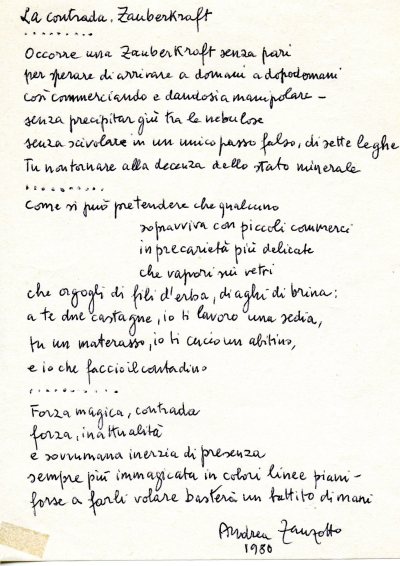 La contrada. Zauberkraft
. . . . . . . . .
Occorre una Zauberkraft senza pari
per sperare di arrivare a domani a dopodomani
così commerciando e dandosi a manipolare –
senza precipitar giù tra le nebulose
senza scivolare in un unico passo falso, di sette leghe
Tu non tornare alla decenza dello stato minerale
. . . . . . . . .
Come si può pretendere che qualcuno
sopravviva con piccoli commerci
in precarietà più delicate
che vapori sui vetri
che orgogli di fili d'erba, di aghi di brina:
a te due castagne, io ti lavoro una sedia,
tu un materasso, io ti cucio un abitino,
e io che faccio il contadino
. . . . . . . . .
Forza magica, contrada
forza, inattualità
e sovrumana inerzia di presenza
sempre più immagicata in colori linee piani –
forse a farli volare basterà un battito di mani
Andrea Zanzotto
1980